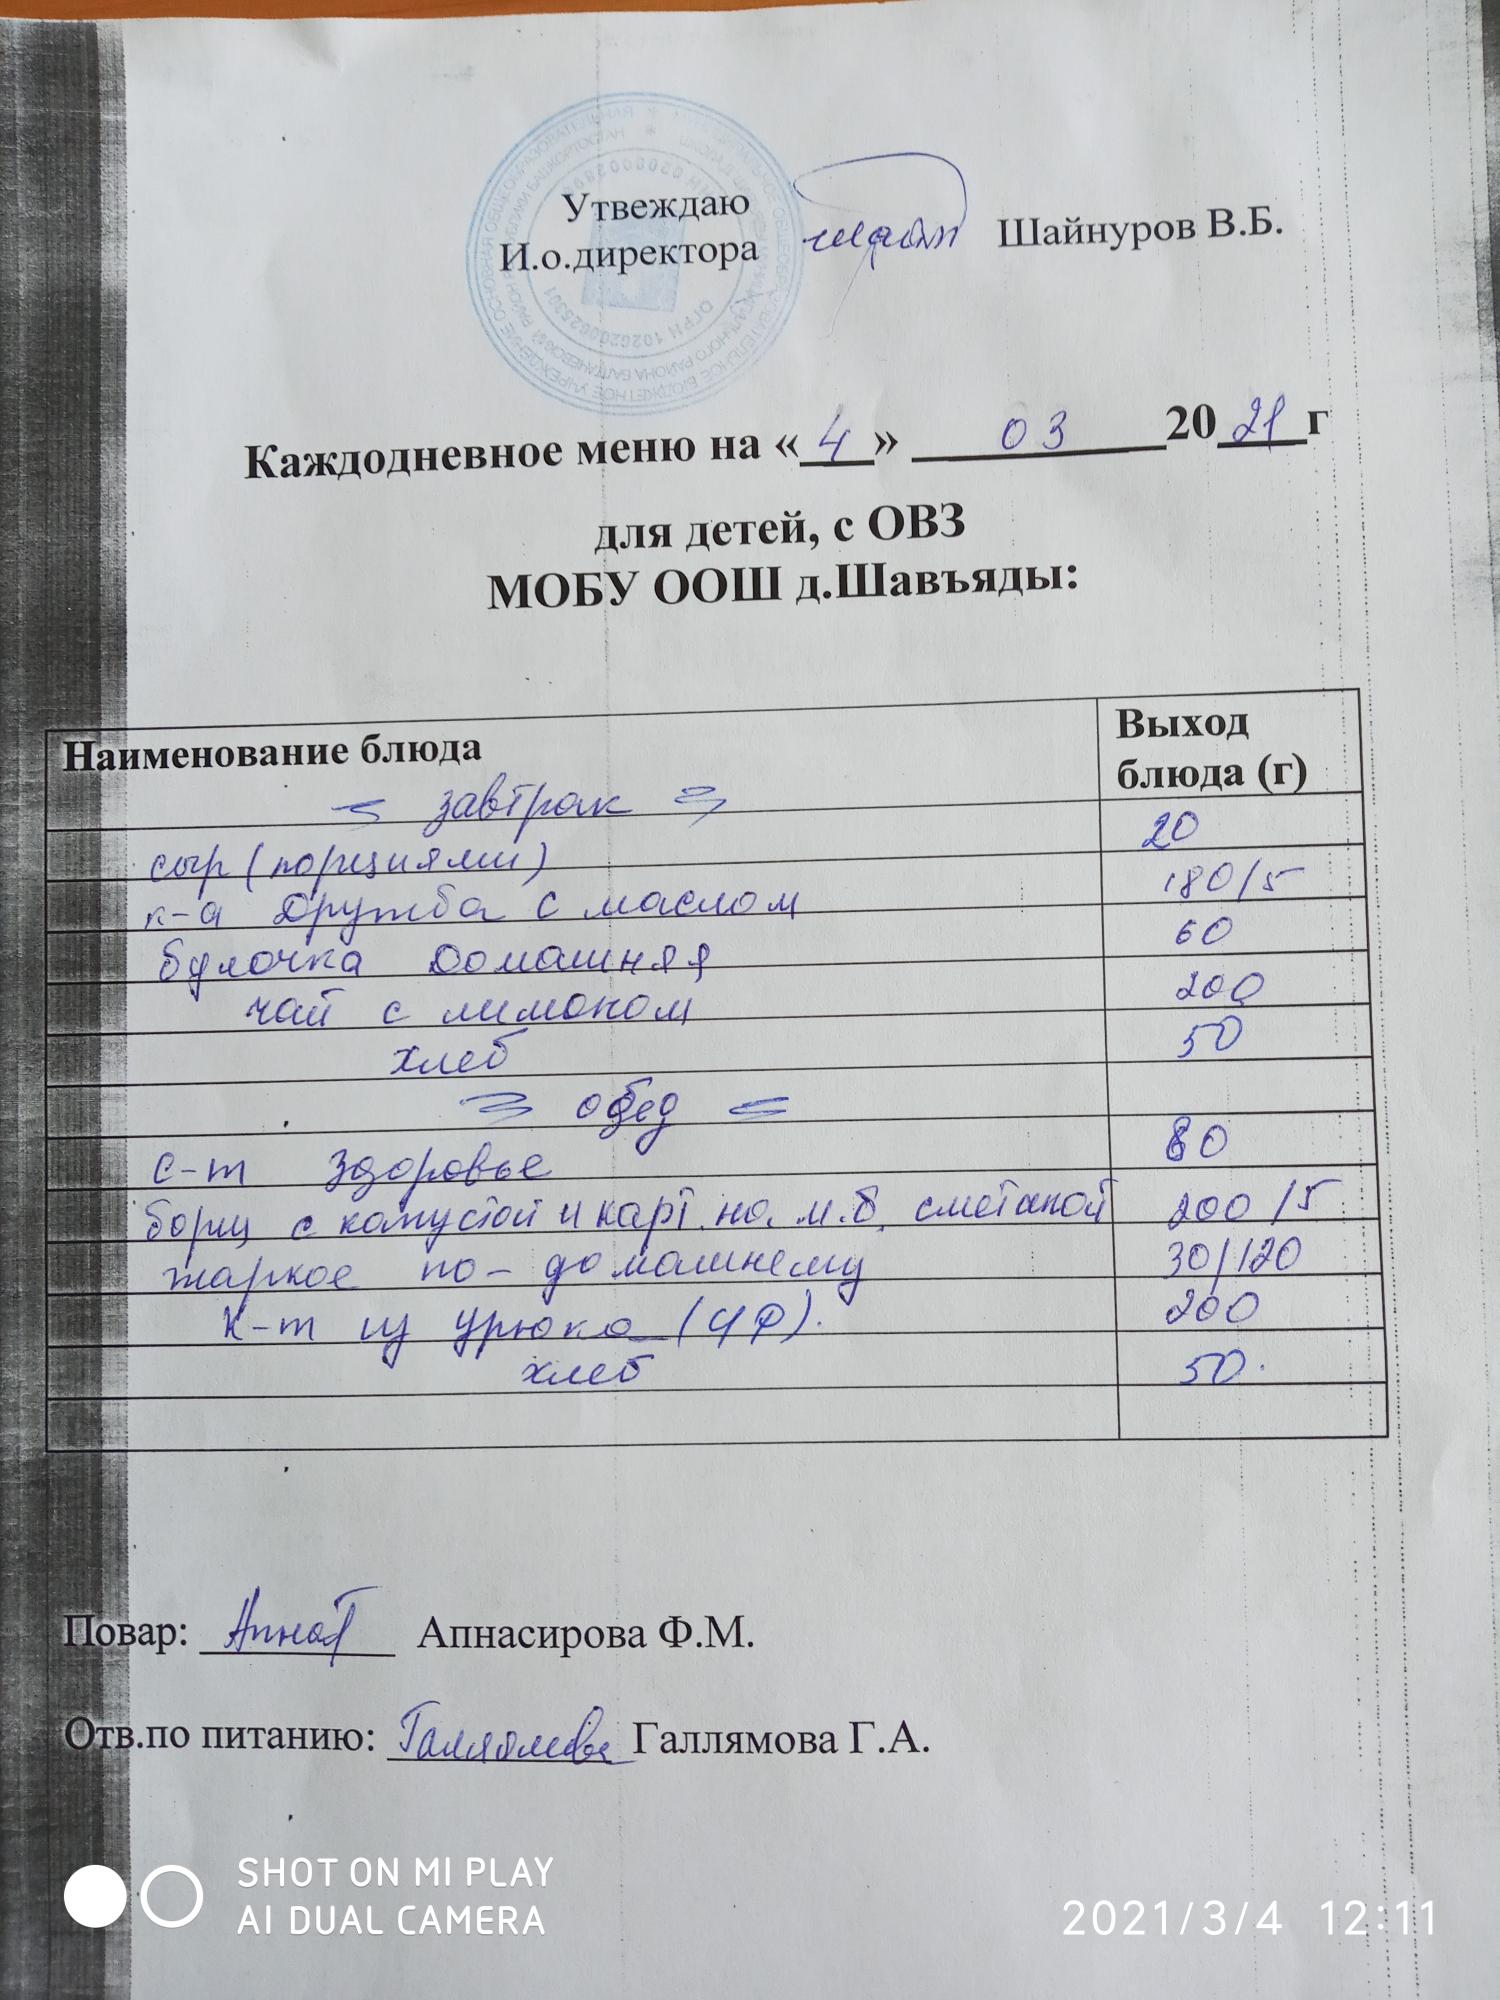 Утвеждаю
И.о.директора Шайнуров В.Б.
Каждодневное меню на «4» 03 2021г
для детей, с ОВЗ
МОБУ ООШ д.Шавъяды:
Наименование блюда Выход блюда (г)
завтрак
сыр (порциями) 20
к-а Дружба с маслом 180/5
булочка домашняя 60
чай с лимоном 200
хлеб 50
обед
с-т здоровье 80
борщ с капустой и карт. на. м.б. сметаной 200/5
жаркое по-домашнему 30/120
к-т из урюка (ЧФ). 200
хлеб 50.
Повар: Апнасирова Ф.М.
Отв.по питанию: Галлямова Галлямова Г.А.
SHOT ON MI PLAY
AI DUAL CAMERA
2021/3/4 12:11